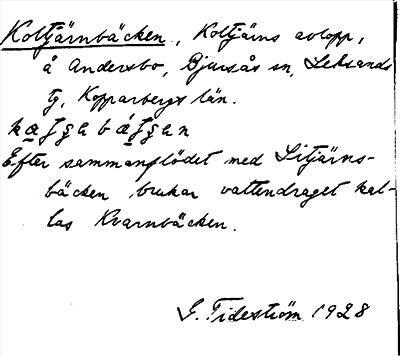 Koltjärnbäcken, Koltjärns avlopp,
å Andersbo, Bjursås sn, Leksands
tg, Kopparbergs län.
Efter sammanflödet med Sitjärns-
bäcken brukar vattendraget kal-
las Kvarnbäcken.
G. Tideström 1928